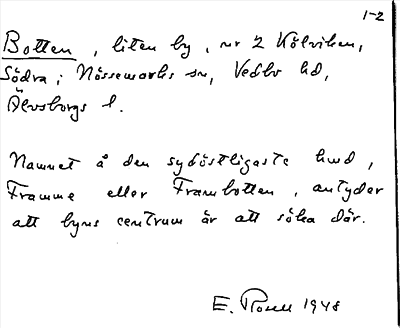 1-2
Botten, liten by, nr 2 Kölviken,
Södra; Nössemarks sn, Vedbo hd,
Älvsborgs l.
Namnet å den sydöstligaste hmd,
Framme eller Frambotten, antyder
att byns centrum är att söka där.
E. 1948